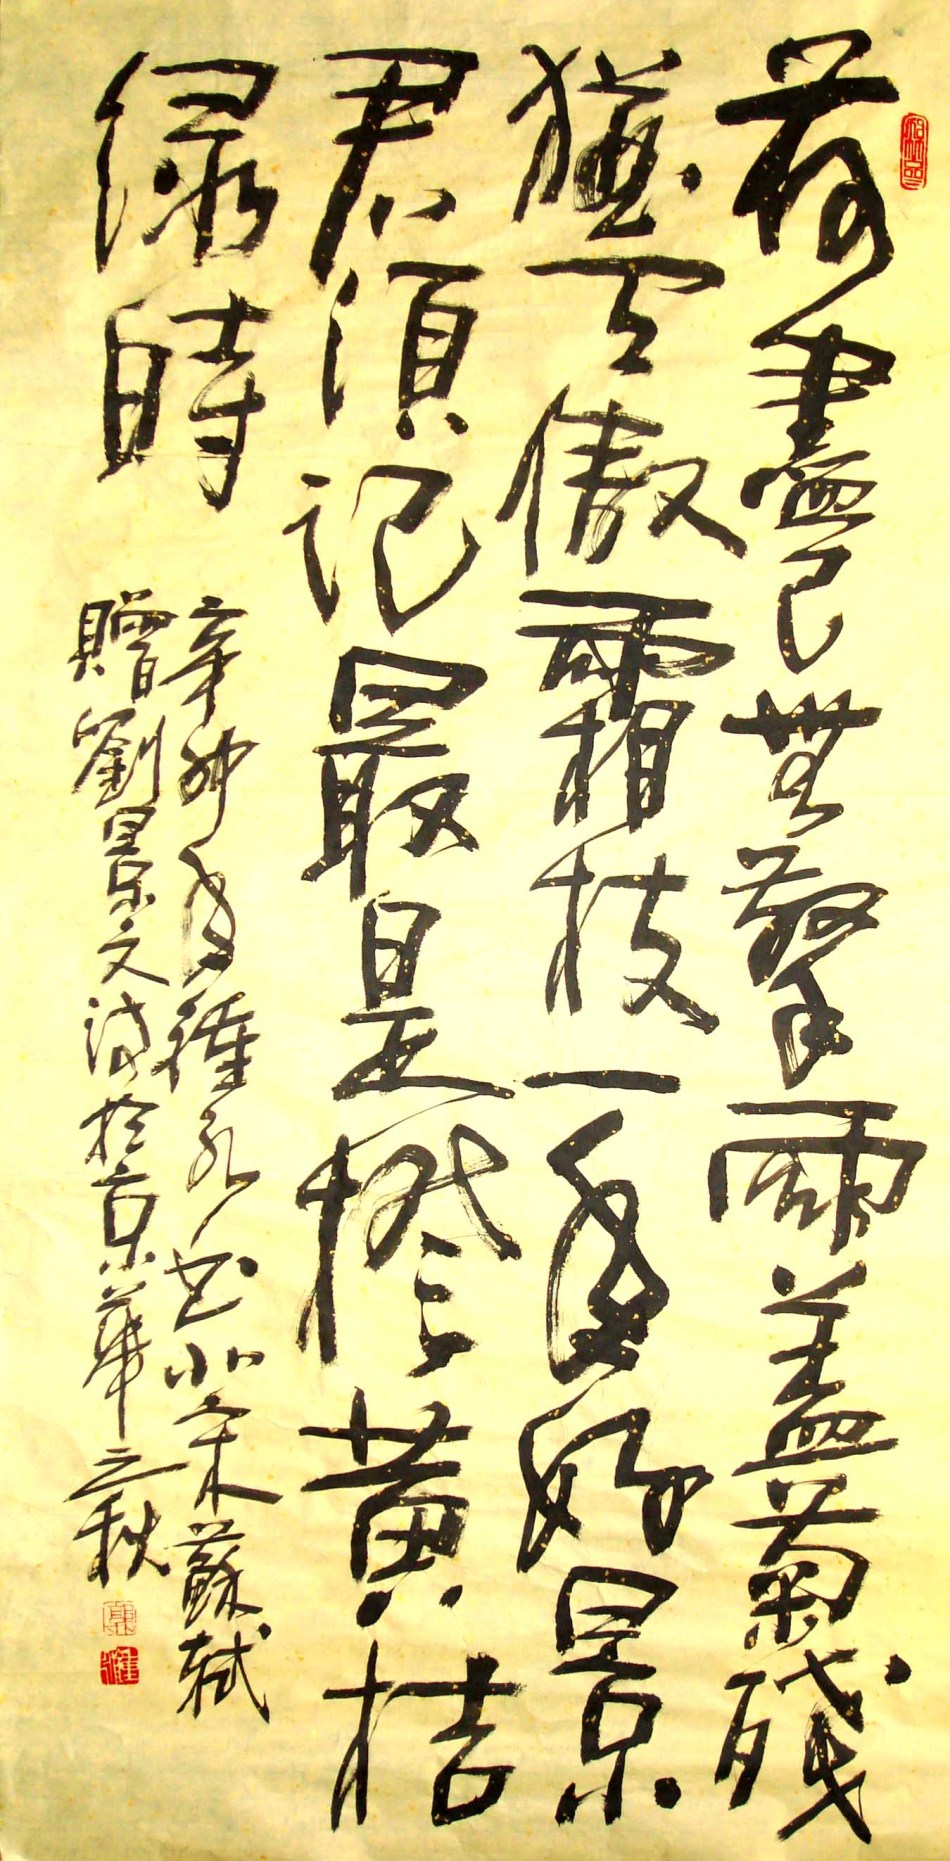 荷盡已無擎雨蓋菊殘
猶有傲霜枝一年好景
君須記最是橙黃桔
綠時
辛卯年書北宋蘇軾
贈劉景文詩於京華之秋